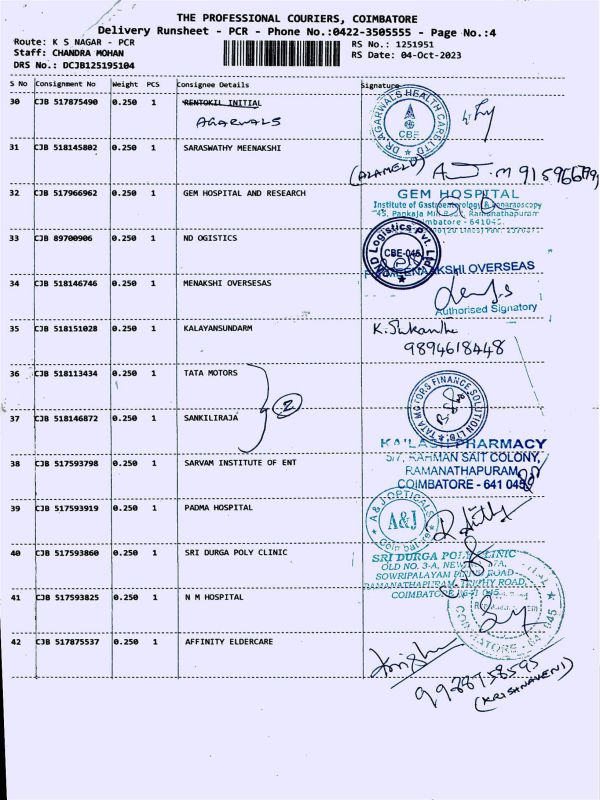 THE PROFESSIONAL COURIERS, COIMBATORE
Delivery Runsheet - PCR - Phone No.:0422-3505555 - Page No.:4
Route: K S NAGAR - PCR
RS No.: 1251951
Staff: CHANDRA MOHAN
RS Date: 04-Oct-2023
DRS No.: DCJB125195104
S No Consignment No Weight PCS Consignee Details Signature
30 CJB 517875490 0.250 1 RENTOKIL INITIAL
AGARWALS
DR.AGARWALS HEALTH CARE LTD
CBE
31 CJB 518145802 0.250 1 SARASWATHY MEENAKSHI
(ALAMELU)
32 CJB 517966962 0.250 1 GEM HOSPITAL AND RESEARCH
GEM HOSPITAL
Institute of Gastroenterology &
45, Pankaja Mill Road, Ramanathapuram
Coimbatore - 641045
33 CJB 89700906 0.250 1 ND OGISTICS
ND Logistics Pvt. Ltd
CBE-045
34 CJB 518146746 0.250 1 MENAKSHI OVERSESAS
MEENAAKSHI OVERSEAS
Authorised Signatory
35 CJB 518151028 0.250 1 KALAYANSUNDARM
9894618448
36 CJB 518113434 0.250 1 TATA MOTORS
2
TATA MOTORS FINANCE SOLUTION LTD
37 CJB 518146872 0.250 1 SANKILIRAJA
KAILASH PHARMACY
5/7, RAHMAN SAIT COLONY,
RAMANATHAPURAM,
COIMBATORE - 641 045
38 CJB 517593798 0.250 1 SARVAM INSTITUTE OF ENT
39 CJB 517593919 0.250 1 PADMA HOSPITAL
A & J OPTICALS
A&J
Coimbatore
40 CJB 517593860 0.250 1 SRI DURGA POLY CLINIC
SRI DURGA POLY CLINIC
OLD NO. 3-A, NEW
SOWRIPALAYAM PIRIVU ROAD
RAMANATHAPURAM, TRICHY ROAD,
COIMBATORE - 641 045
41 CJB 517593825 0.250 1 N M HOSPITAL
COIMBATORE - 641 045
42 CJB 517875537 0.250 1 AFFINITY ELDERCARE
9988758595
(KRISHNAVENI)